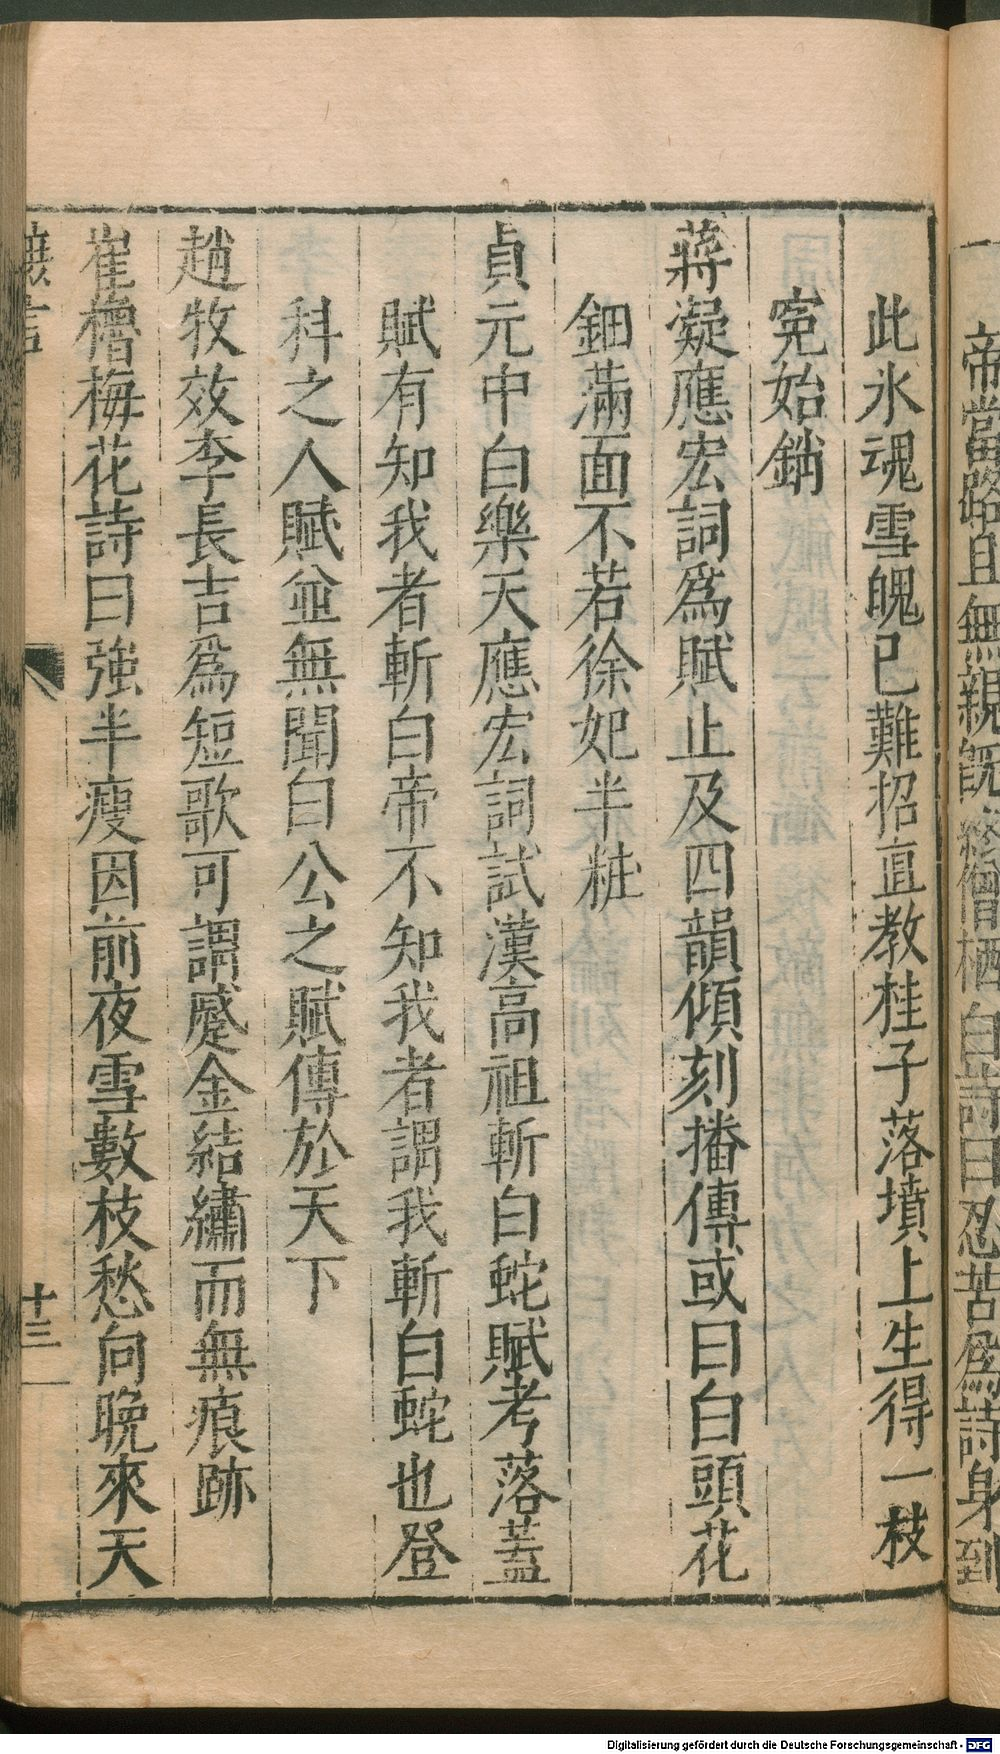 帝當路且無親旣
僧栖白詩曰忍苦爲詩身到
此氷魂雪魄已難招直教桂子落墳上生得一枝
寃始銷
蔣凝應宏詞爲賦止及四韻傾刻播傳或曰白頭花
鈿滿面不若徐妃半粧
貞元中白樂天應宏詞試漢高祖斬白蛇賦考落蓋
賦有知我者斬白帝不知我者謂我斬白蛇也登
科之人賦並無聞白公之賦傳於天下
趙牧效李長吉爲短歌可謂蹙金結繡而無痕跡
崔櫓梅花詩曰強半瘦因前夜雪數枝愁向晩來天
摭言
十三
Digitalisierung gefördert durch die Deutsche Forschungsgemeinschaft - DFG